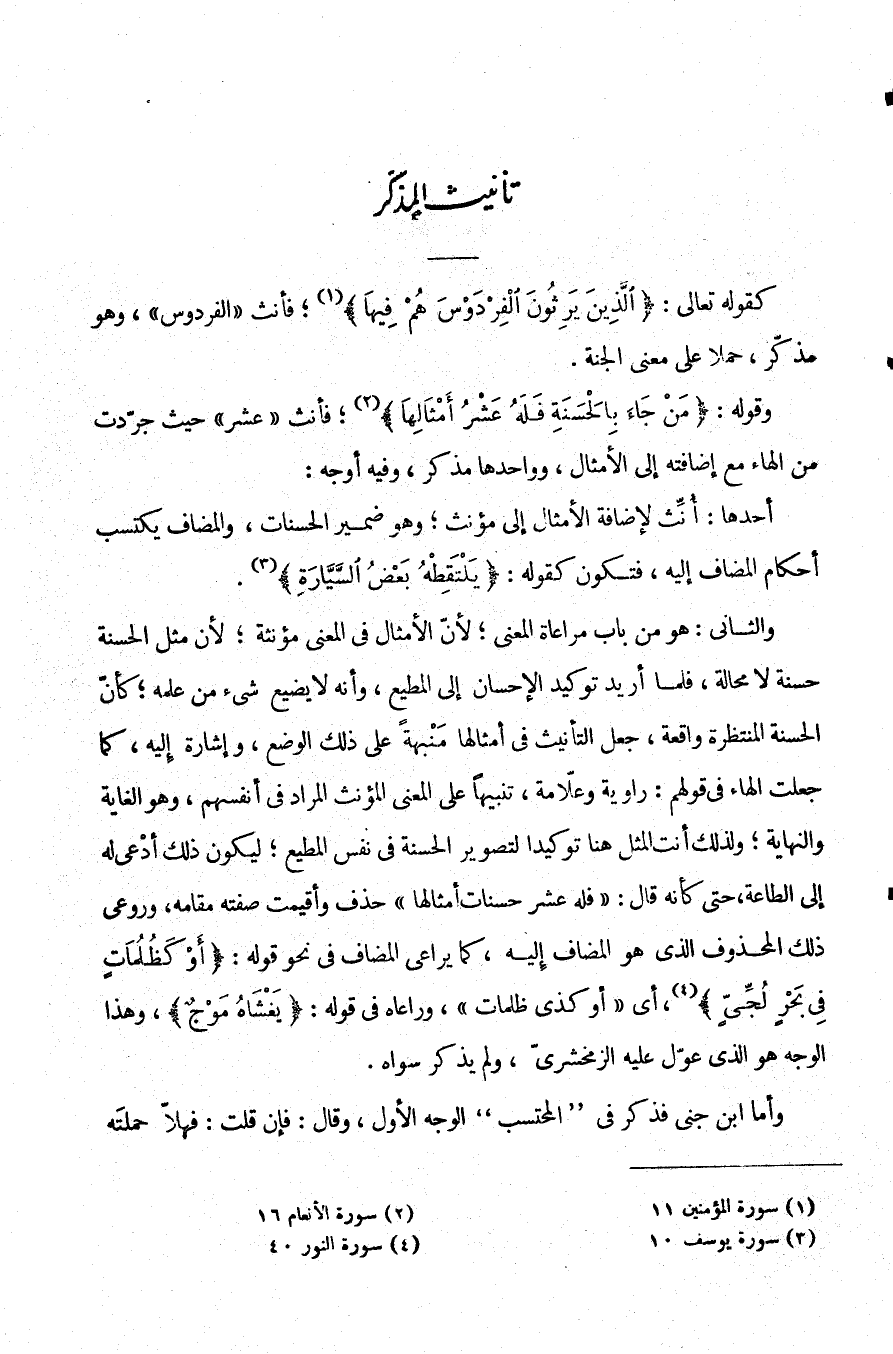 تأنيث المذكّر
كقوله تعالى : ﴿ ٱلَّذِينَ يَرِثُونَ ٱلْفِرْدَوْسَ هُمْ فِيهَا ﴾(١) ؛ فأنث «الفردوس» ، وهو
مذكّر ، حملا على معنى الجنة .
وقوله : ﴿ مَنْ جَاءَ بِالْحَسَنَةِ فَلَهُ عَشْرُ أَمْثَالِهَا ﴾(٢) ؛ فأنث « عشر» حيث جرّدت
من الهاء مع إضافته إلى الأمثال ، وواحدها مذكر ، وفيه أوجه :
أحدها : أُنِّث لإضافة الأمثال إلى مؤنث ؛ وهو ضمير الحسنات ، والمضاف يكتسب
أحكام المضاف إليه ، فتكون كقوله : ﴿ يَلْتَقِطْهُ بَعْضُ ٱلسَّيَّارَةِ ﴾(٣) .
والثانى : هو من باب مراعاة المعنى ؛ لأنّ الأمثال فى المعنى مؤنثة ؛ لأن مثل الحسنة
حسنة لا محالة ، فلما أريد توكيد الإحسان إلى المطيع ، وأنه لا يضيع شىء من عمله ؛ كأنّ
الحسنة المنتظرة واقعة ، جعل التأنيث فى أمثالها مَنْبهةً على ذلك الوضع ، وإشارة إليه ، كما
جعلت الهاء فى قولهم : راوية وعلّامة ، تنبيهاً على المعنى المؤنث المراد فى أنفسهم ، وهو الغاية
والنهاية ؛ ولذلك أنت المثل هنا توكيدا لتصوير الحسنة فى نفس المطيع ؛ ليكون ذلك أدْعى له
إلى الطاعة،حتى كأنه قال : « فله عشر حسنات أمثالها » حذف وأقيمت صفته مقامه، وروعى
ذلك المحذوف الذى هو المضاف إليه ، كما يراعى المضاف فى نحو قوله : ﴿ أَوْ كَظُلُمَاتٍ
فِى بَحْرٍ لُجِّىٍّ ﴾(٤)، أى « أو كذى ظلمات » ، وراعاه فى قوله : ﴿ يَغْشَاهُ مَوْجٌ ﴾ ، وهذا
الوجه هو الذى عوّل عليه الزمخشرىّ ، ولم يذكر سواه .
وأما ابن جنى فذكر فى ”المحتسب“ الوجه الأول ، وقال : فإن قلت : فهلاّ حملتَه
(١) سورة المؤمنين ١١ (٢) سورة الأنعام ١٦
(٣) سورة يوسف ١٠ (٤) سورة النور ٤٠